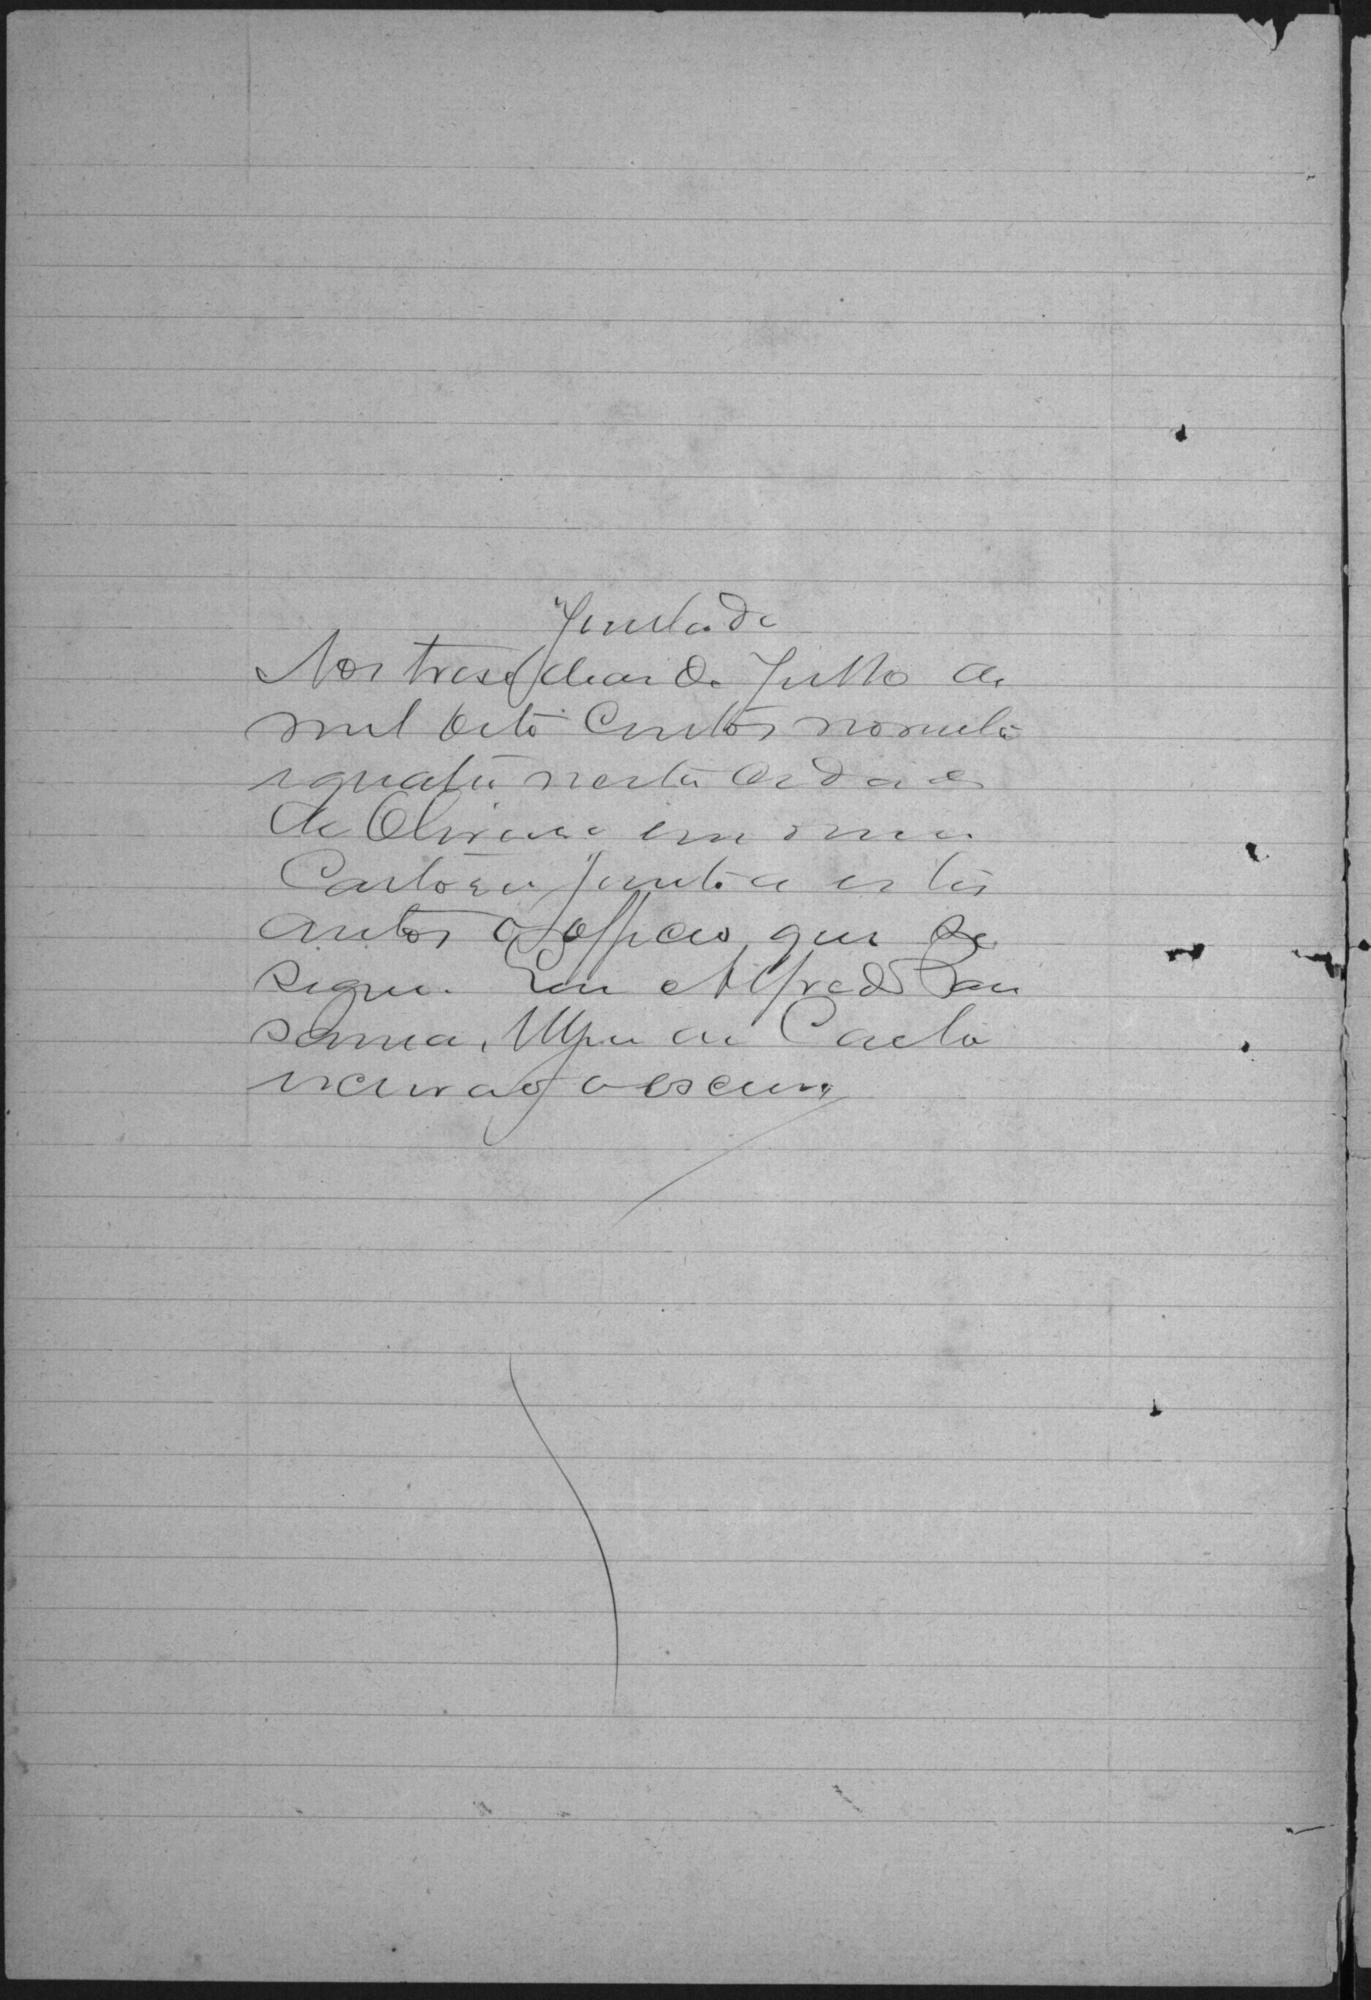 Juntada
Aos trese dias de Julho de
mil oito centos noventa
e quatro nesta cidade
de Oliveira em meu
Cartorio junto a estes
autos o officio que se
segue. Eu Alfredo
de
escrivão o escrevi